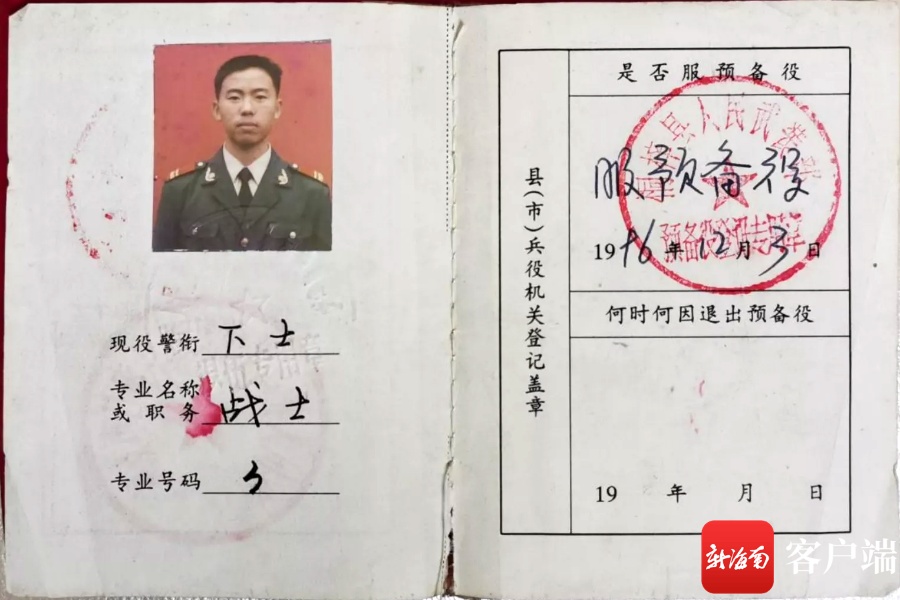 现役警衔 下士
专业名称
或职务 战士
专业号码
县(市)兵役机关登记盖章
是否服预备役
服预备役
县人民武装部
预备役登记专用章
19 96 年 12 月 3 日
何时何因退出预备役
19 年 月 日
新海南
客户端